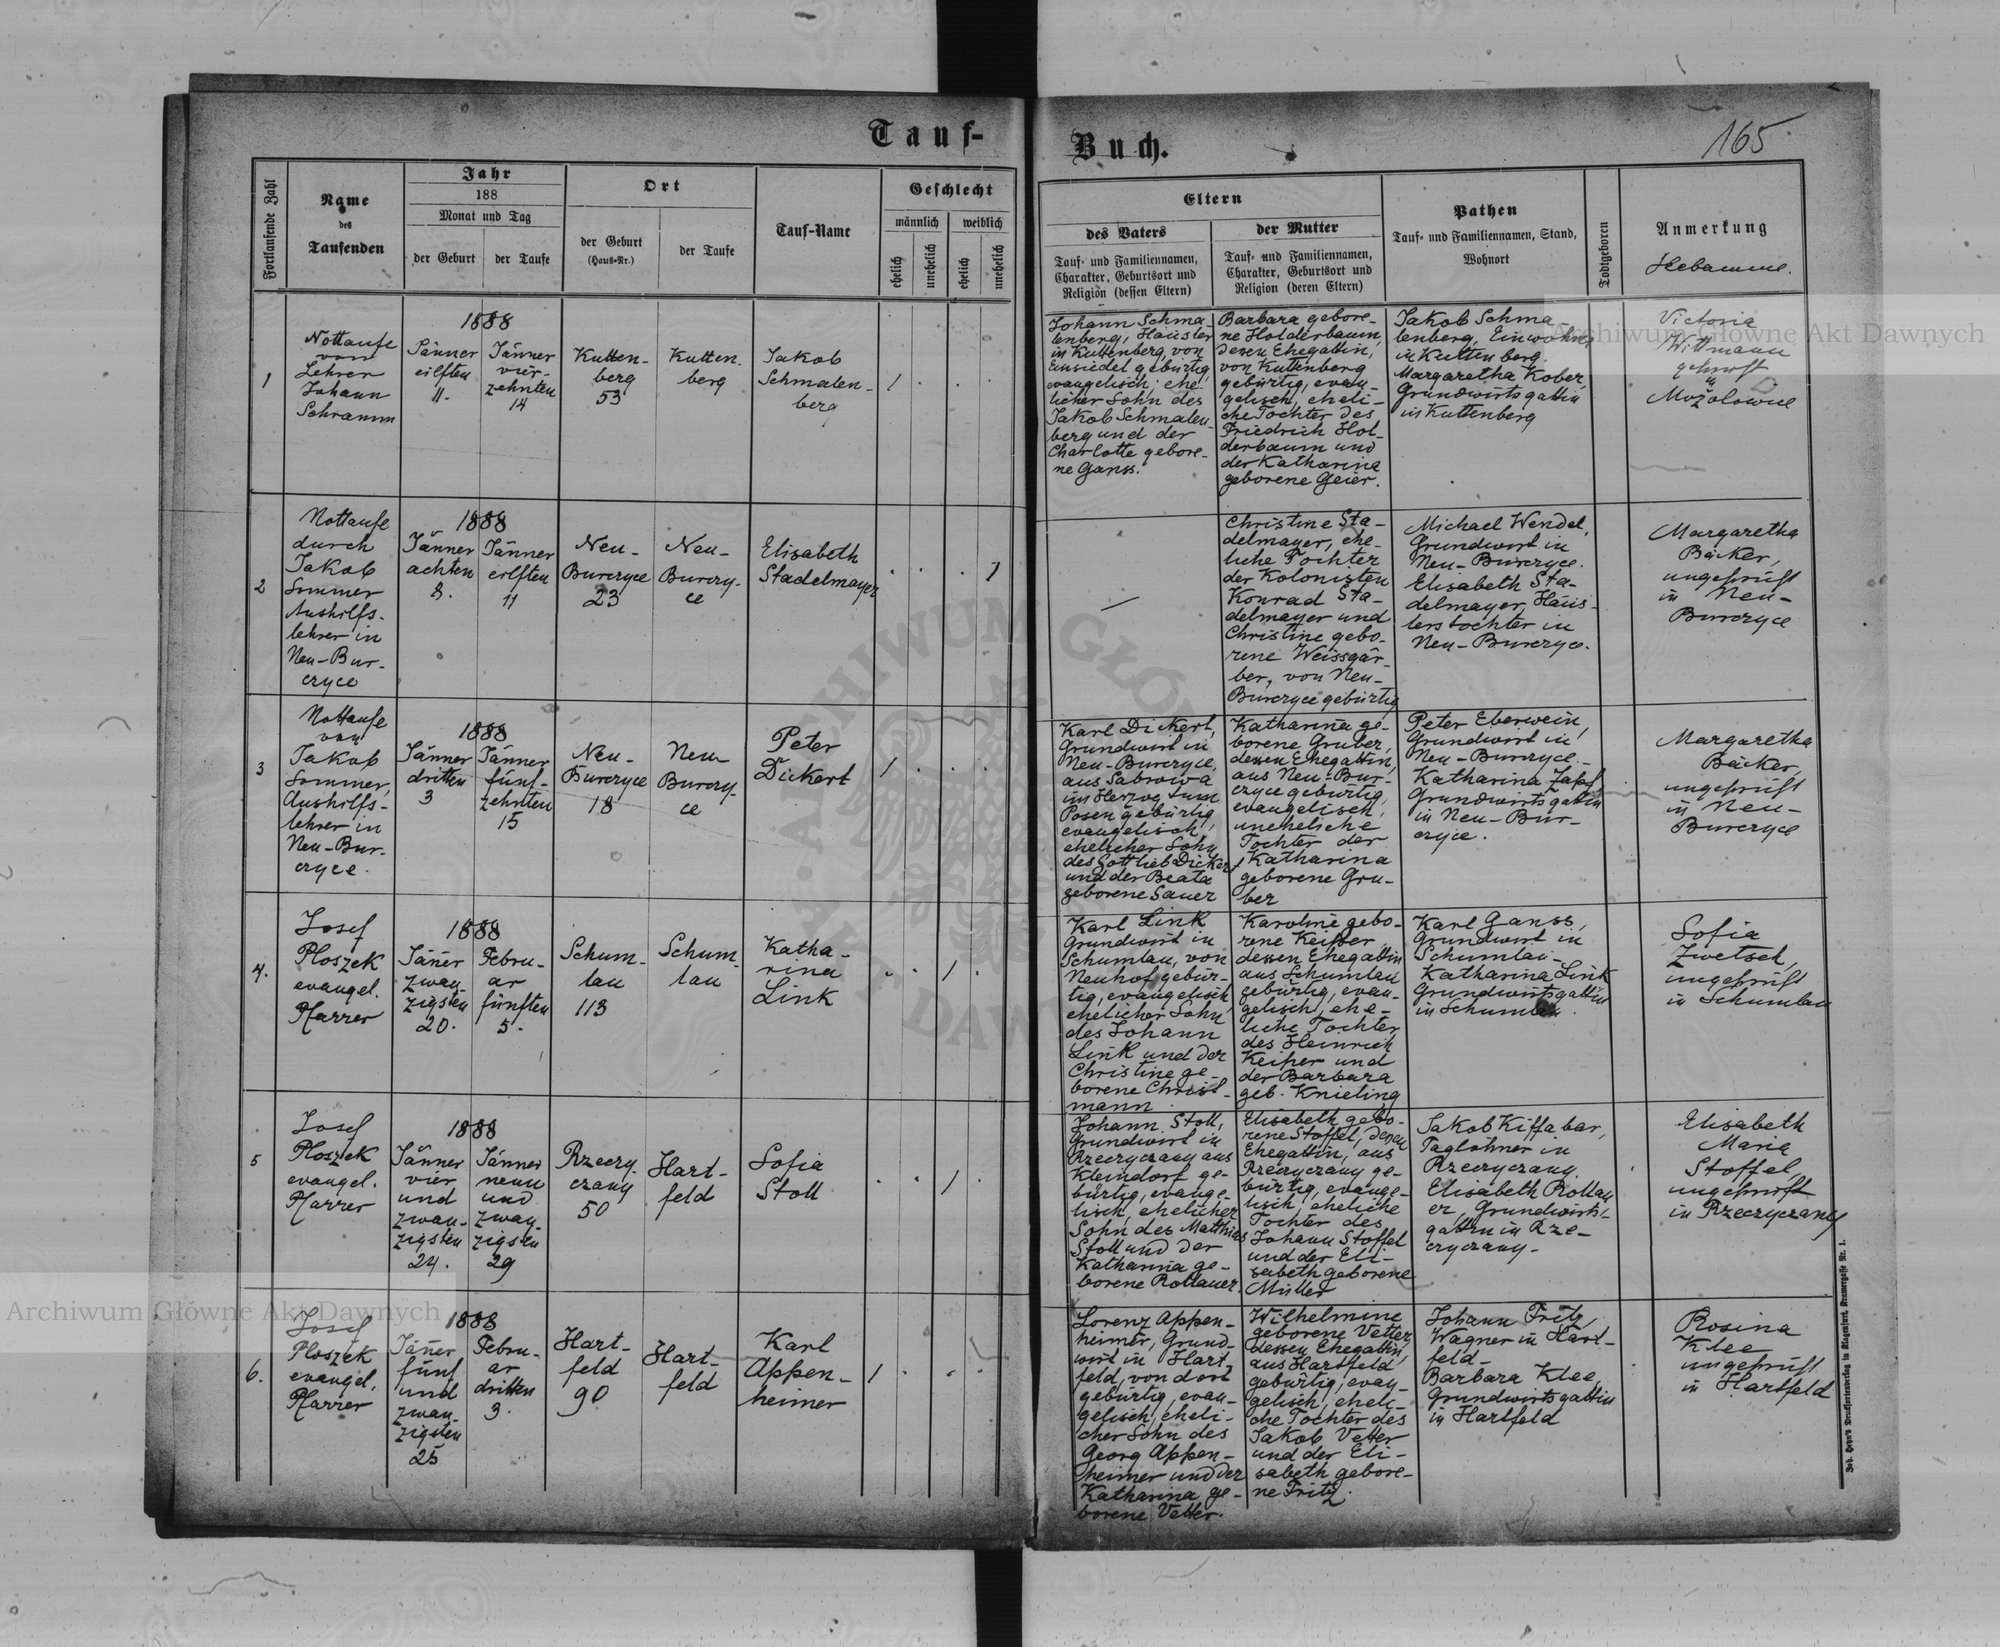 Tauf-
Buch.
165
Fortlaufende Zahl
Name
des
Taufenden
Jahr
188
Monat und Tag
der Geburt
der Taufe
Ort
der Geburt
(Haus-Nr.)
der Taufe
Tauf-Name
Geschlecht
männlich
weiblich
ehelich
unehelich
ehelich
unehelich
Eltern
des Vaters
Tauf- und Familiennamen,
Charakter, Geburtsort und
Religion (dessen Eltern)
der Mutter
Tauf- und Familiennamen,
Charakter, Geburtsort und
Religion (deren Eltern)
Pathen
Tauf- und Familiennamen, Stand,
Wohnort
Todtgeboren
Anmerkung
Hebamme.
1
Nottaufe
vom
Lehrer
Johann
Schramm
1888
Jänner
eilften
11.
Jänner
vier-
zehnten
14
Kutten-
berg
53
Kutten-
berg
Jakob
Schmalen-
berg
1
Johann Schma-
lenberg, Häusler
in Kuttenberg, von
Einsiedel gebürtig,
evangelisch; ehe-
licher Sohn des
Jakob Schmalen-
berg und der
Charlotte gebore-
ne Ganss.
Barbara gebore-
ne Holderbaum,
deren Ehegattin,
von Kuttenberg
gebürtig, evan-
gelisch, eheli-
che Tochter des
Friedrich Hol-
derbaum und
der Katharina
geborene Geier.
Jakob Schma-
lenberg, Einwohner
in Kuttenberg.
Margaretha Kober,
Grundwirtsgattin
in Kuttenberg
Victoria
Wittmann
geprüft
in
Mužolowice
2
Nottaufe
durch
Jakob
Sommer
Aushilfs-
lehrer in
Neu-Bur-
czyce
1888
Jänner
achten
8.
Jänner
eilften
11
Neu-
Burczyce
23
Neu-
Burczy-
ce
Elisabeth
Stadelmayer
1
—
Christine Sta-
delmayer, ehe-
liche Tochter
der Kolonisten
Konrad Sta-
delmayer und
Christine gebo-
rene Weissgär-
ber, von Neu-
Burczyce gebürtig
Michael Wendel,
Grundwirt in
Neu-Burczyce.
Elisabeth Sta-
delmayer, Häus-
lerstochter in
Neu-Burczyce.
Margaretha
Bäcker,
ungeprüft
in Neu-
Burczyce
3
Nottaufe
von
Jakob
Sommer,
Aushilfs-
lehrer in
Neu-Bur-
czyce.
1888
Jänner
dritten
3
Jänner
fünf-
zehnten
15
Neu-
Burczyce
18
Neu-
Burczy-
ce
Peter
Dickert
1
Karl Dickert,
Grundwirt in
Neu-Burczyce,
aus Sabrowa
im Herzogtum
Posen gebürtig
evangelisch,
ehelicher Sohn
des Gottlieb Dickert
und der Beata
geborene Sauer
Katharina ge-
borene Gruber,
dessen Ehegattin,
aus Neu-Bur-
czyce gebürtig,
evangelisch,
uneheliche
Tochter der
Katharina
geborene Gru-
ber
Peter Eberwein,
Grundwirt in
Neu-Burczyce.-
Katharina Zapf,
Grundwirtsgattin
in Neu-Bur-
czyce.
Margaretha
Bäcker,
ungeprüft
in Neu-
Burczyce
4.
Josef
Ploszek
evangel.
Pfarrer
1888
Jäner
zwan-
zigsten
20.
Febru-
ar
fünften
5.
Schum-
lau
113
Schum-
lau
Katha-
rina
Link
1
Karl Link
Grundwirt in
Schumlau, von
Neuhof gebür-
tig, evangelisch
ehelicher Sohn
des Johann
Link und der
Christine ge-
borene Christ-
mann
Karoline gebo-
rene Keiper
dessen Ehegattin
aus Schumlau
gebürtig, evan-
gelisch, ehe-
liche Tochter
des Heinrich
Keiper und
der Barbara
geb. Knieling
Karl Ganss,
Grundwirt in
Schumlau-
Katharina Link
Grundwirtsgattin
in Schumlau.
Sofia
Zwetsch,
ungeprüft
in Schumlau
5
Josef
Ploszek
evangel.
Pfarrer
1888
Jänner
vier
und
zwan-
zigsten
24.
Jänner
neun
und
zwan-
zigsten
29
Rzeczy-
czany
50
Hart-
feld
Sofia
Stoll
1
Johann Stoll,
Grundwirt in
Rzeczyczany aus
Kleindorf ge-
bürtig, evange-
lisch, ehelicher
Sohn des Matthias
Stoll und der
Katharina ge-
borene Rollauer.
Elisabeth gebo-
rene Stoffel, dessen
Ehegattin, aus
Rzeczyczany ge-
bürtig, evange-
lisch, eheliche
Tochter des
Johann Stoffel
und der Eli-
sabeth geborene
Müller
Jakob Kiffabar,
Taglöhner in
Rzeczyczany.
Elisabeth Rollau-
er, Grundwirts-
gattin in Rze-
czyczany-
Elisabeth
Maria
Stoffel,
ungeprüft
in Rzeczyczany
6.
Josef
Ploszek
evangel.
Pfarrer
1888
Jäner
fünf
und
zwan-
zigsten
25
Febru-
ar
dritten
3.
Hart-
feld
90
Hart-
feld
Karl
Appen-
heimer
1
Lorenz Appen-
heimer, Grund-
wirt in Hart-
feld, von dort
gebürtig, evan-
gelisch, eheli-
cher Sohn des
Georg Appen-
heimer und der
Katharina ge-
borene Vetter.
Wilhelmine
geborene Vetter
dessen Ehegattin
aus Hartfeld
gebürtig, evan-
gelisch, eheli-
che Tochter des
Jakob Vetter
und der Eli-
sabeth gebore-
ne Fritz.
Johann Fritz,
Wagner in Hart-
feld-
Barbara Klee,
Grundwirtsgattin
in Hartfeld
Rosina
Klee
ungeprüft
in Hartfeld
Joh. Heyn's Drucksortenverlag in Klagenfurt, Kramergasse Nr. 1.
Archiwum Główne Akt Dawnych
Archiwum Główne Akt Dawnych